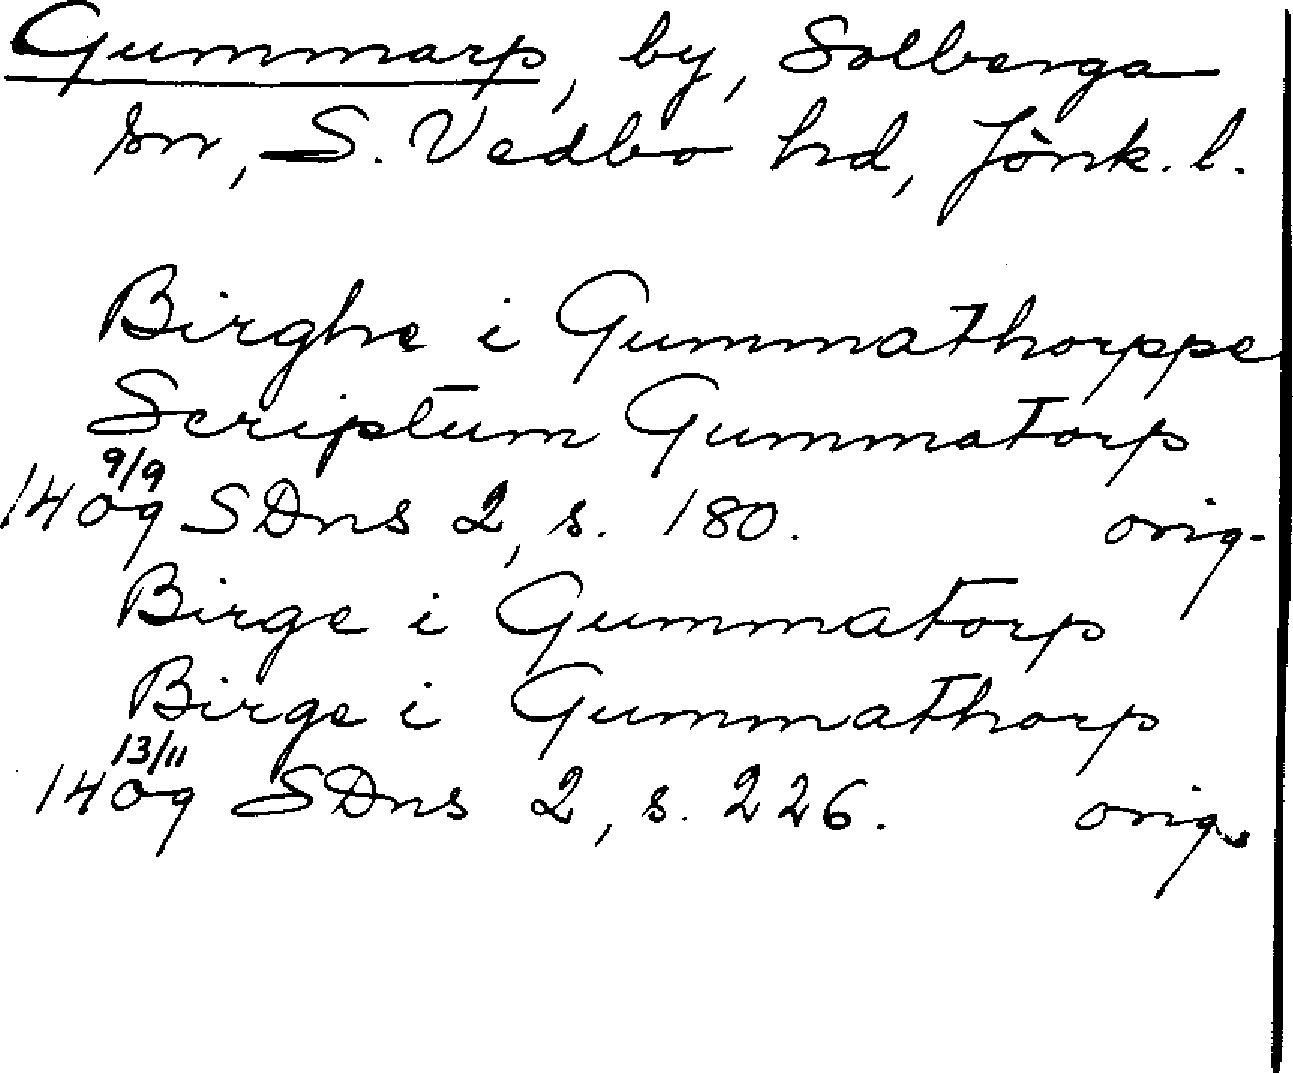 Gummarp, by, Solberga
sn, S. Vedbo hd, Jönk. l.
Birghe i Gummathorppe
Scriptum Gummatorp
9/9
1409 SDns 2, s. 180. orig.
Birge i Gummatorp
Birge i Gummathorp
13/11
1409 SDns 2, s. 226. orig.